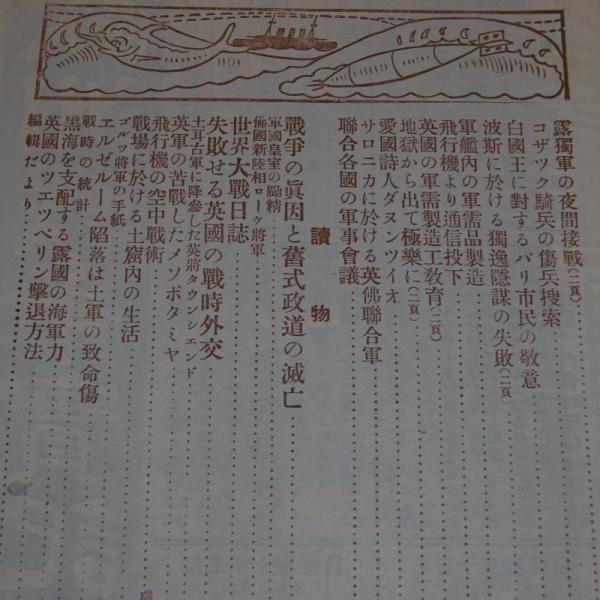 露獨軍の夜間接戰(二頁)
コザツク騎兵の傷兵搜索
白國王に對するパリ市民の敬意
波斯に於ける獨逸隱謀の失敗(二頁)
軍艦內の軍需品製造
飛行機より通信投下
英國の軍需製造工教育(二頁)
地獄から出て極樂に(二頁)
愛國詩人ダヌンツイオ
サロニカに於ける英佛聯合軍
聯合各國の軍事會議
讀物
戰爭の眞因と舊式政道の滅亡
軍國皇室の勵精
佛國新陸相ローケ將軍
世界大戰日誌
失敗せる英國の戰時外交
土耳古軍に降參した英將タウンシエンド
英軍の苦戰したメソポタミヤ
飛行機の空中戰術
戰場に於ける土窟內の生活
ゴルツ將軍の手紙
ヱルゼルーム陷落は土軍の致命傷
戰時の統計
黑海を支配する露國の海軍力
英國のツエツペリン擊退方法
編輯だより